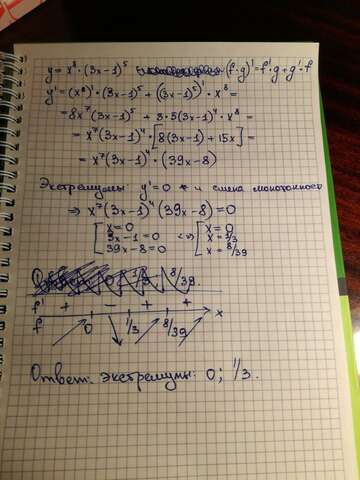 y = x⁸ · (3x-1)⁵ (f·g)' = f'·g + g'·f
y' = (x⁸)' · (3x-1)⁵ + ((3x-1)⁵)' · x⁸ =
= 8x⁷(3x-1)⁵ + 3·5(3x-1)⁴ · x⁸ =
= x⁷(3x-1)⁴ · [8(3x-1) + 15x] =
= x⁷(3x-1)⁴ · (39x-8)
Экстремумы: y'=0 и смена монотонност
⇒ x⁷(3x-1)⁴(39x-8)=0
[x=0 <=> [x=0
3x-1=0 x=1/3
39x-8=0 x=8/39
f' + - + +
f 0 1/3 8/39 x
Ответ: экстремумы: 0; 1/3.